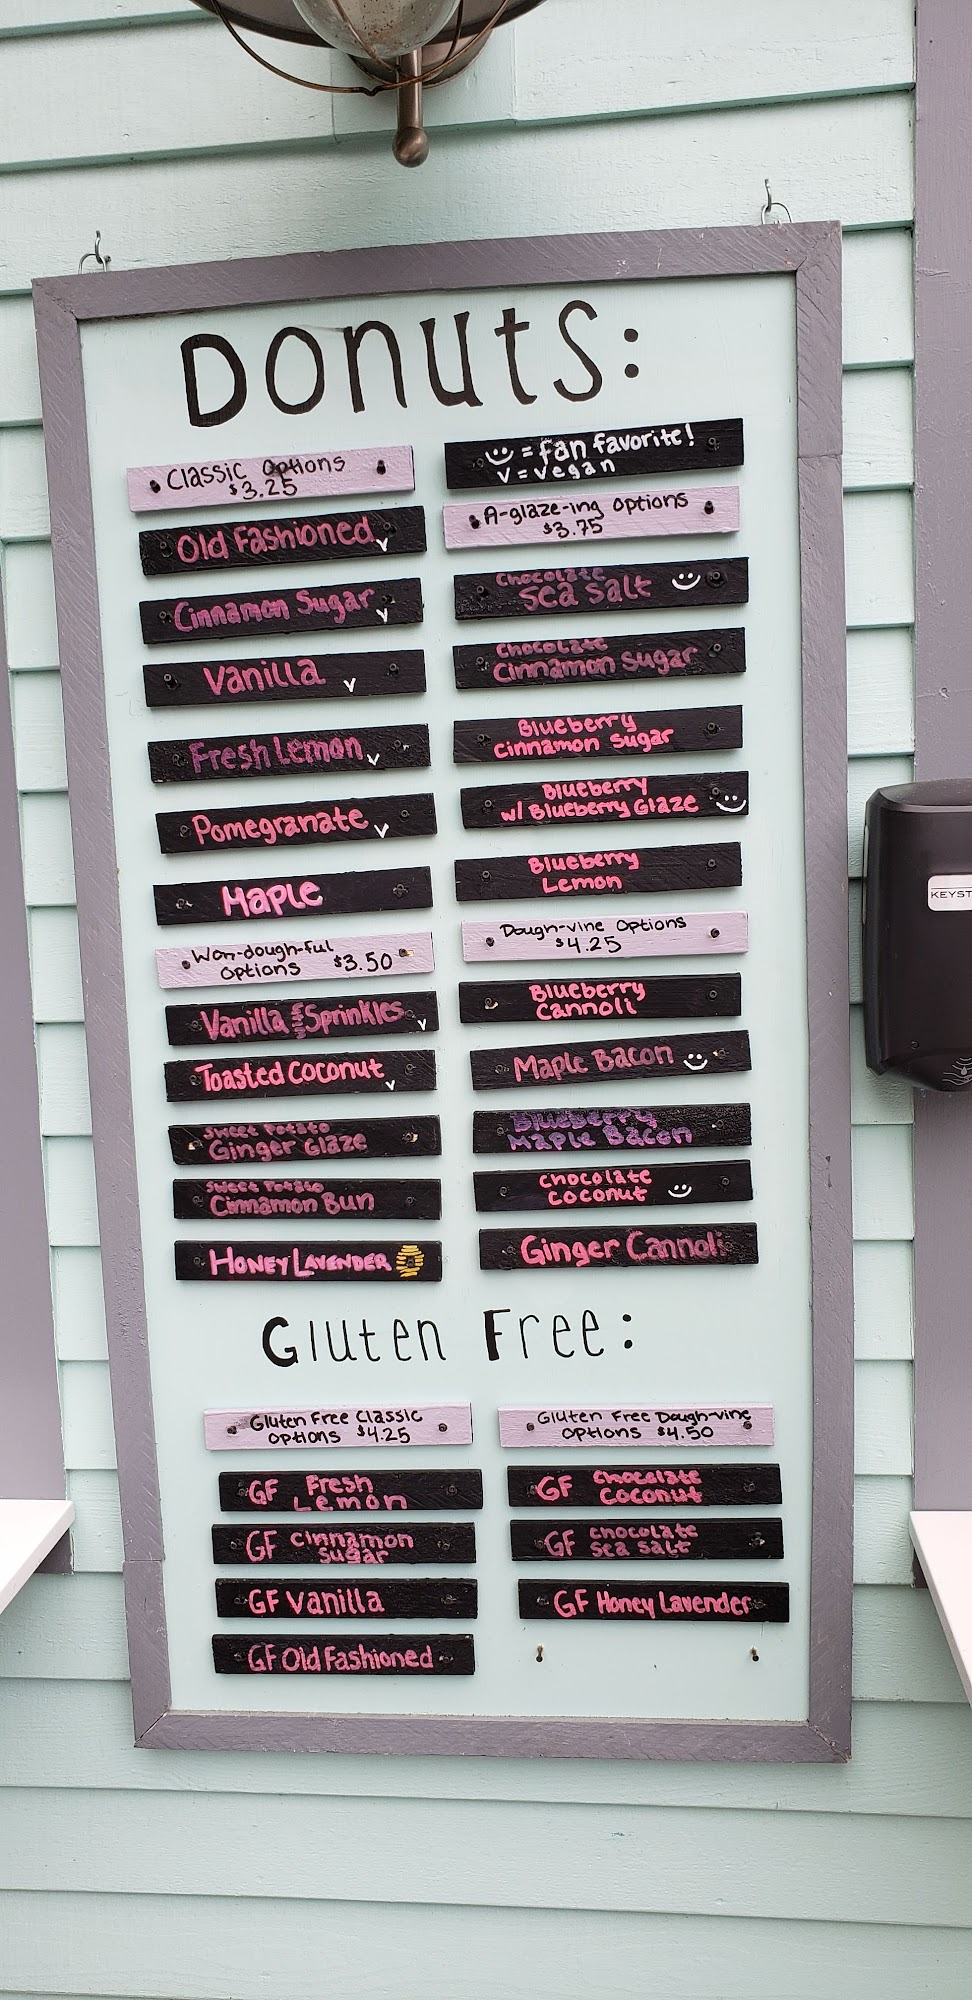 Donuts:
Classic Options
$3.25
Old Fashioned v
Cinnamon Sugar v
Vanilla v
Fresh Lemon v
Pomegranate v
Maple
Won-dough-ful
Options $3.50
Vanilla with Sprinkles v
Toasted Coconut v
Sweet Potato
Ginger Glaze
Sweet Potato
Cinnamon Bun
Honey Lavender
☺ = fan favorite!
V = vegan
A-glaze-ing Options
$3.75
Chocolate
Sea Salt ☺
Chocolate
Cinnamon Sugar
Blueberry
Cinnamon Sugar
Blueberry
w/ Blueberry Glaze ☺
Blueberry
Lemon
Dough-vine Options
$4.25
Blueberry
Cannoli
Maple Bacon ☺
Blueberry
Maple Bacon
Chocolate
Coconut ☺
Ginger Cannoli
Gluten Free:
Gluten Free Classic
Options $4.25
GF Fresh
Lemon
GF Cinnamon
Sugar
GF Vanilla
GF Old Fashioned
Gluten Free Dough-vine
Options $4.50
GF Chocolate
Coconut
GF Chocolate
Sea Salt
GF Honey Lavender
KEYST